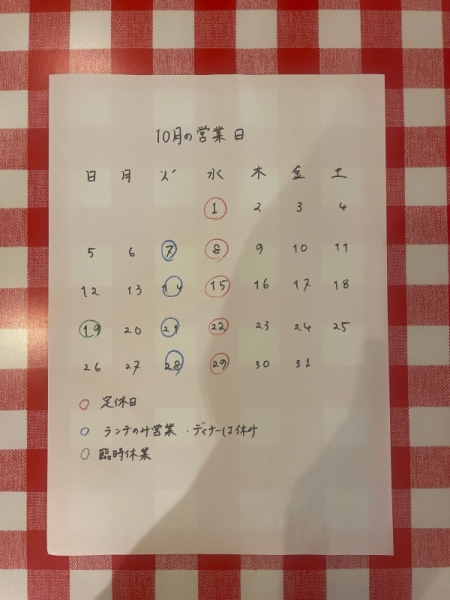 10月の営業日
日 月 火 水 木 金 土
1 2 3 4
5 6 7 8 9 10 11
12 13 14 15 16 17 18
19 20 21 22 23 24 25
26 27 28 29 30 31
定休日
ランチのみ営業・ディナーは休み
臨時休業